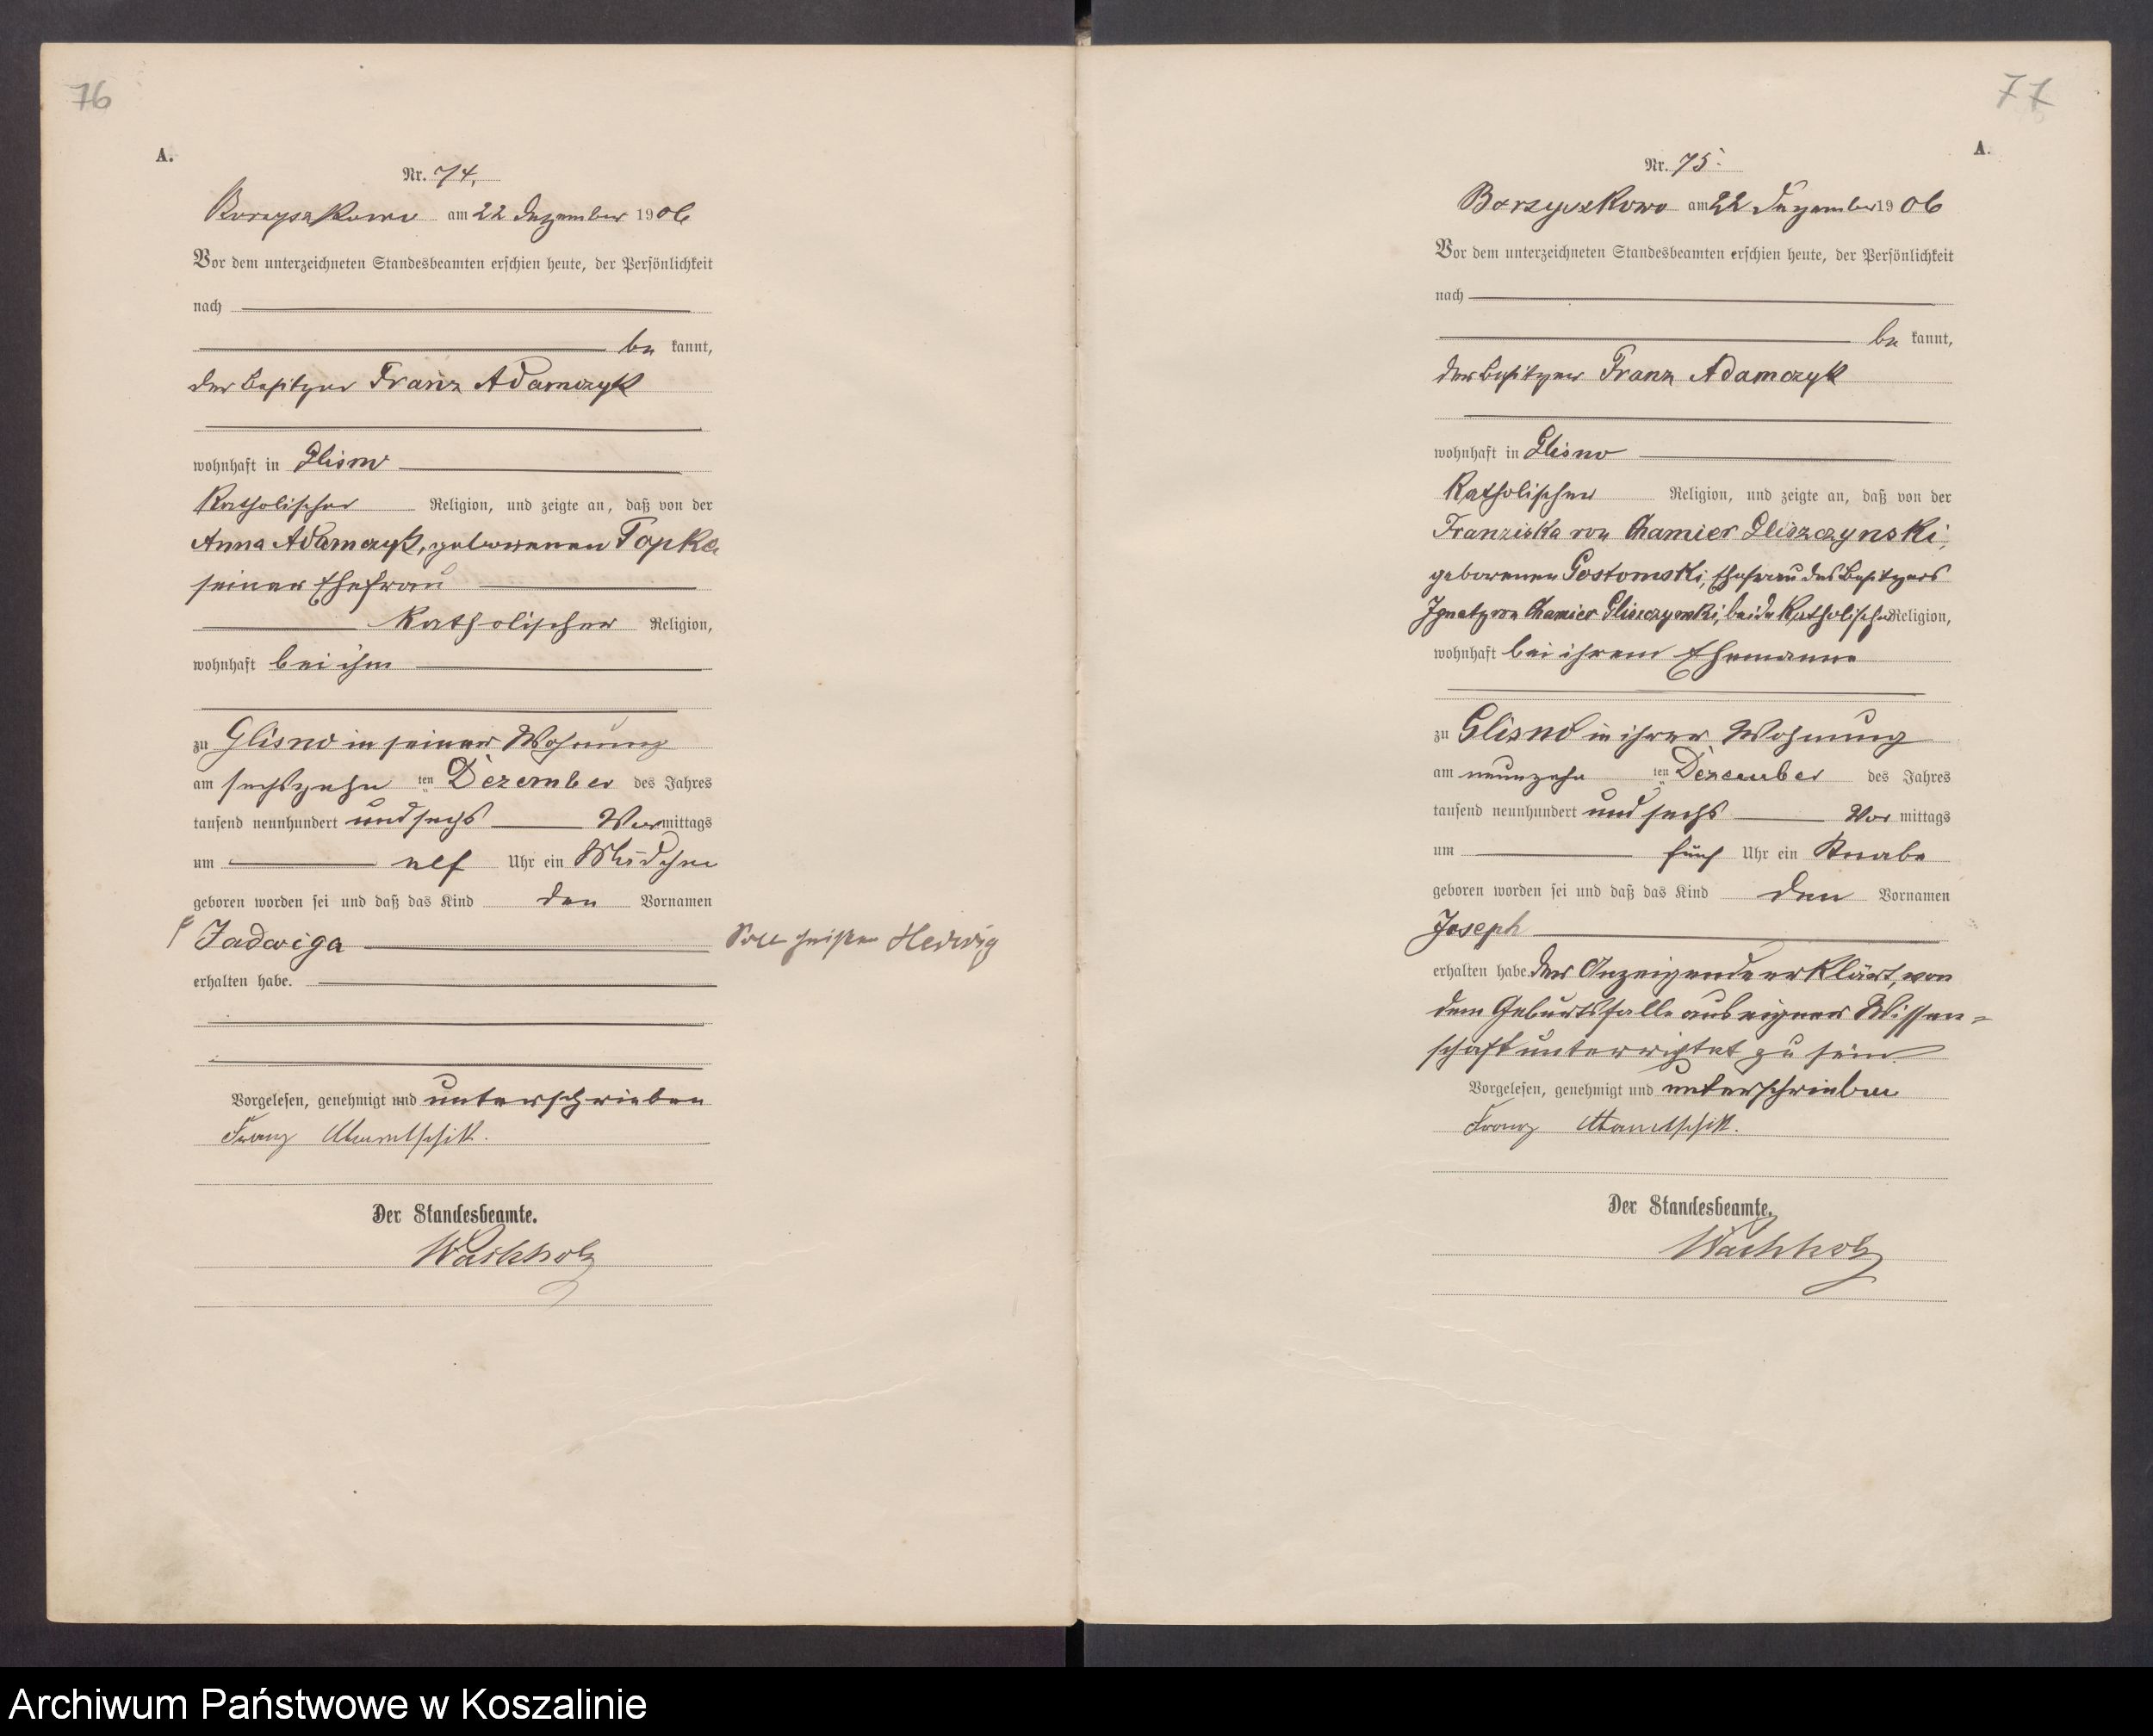 76
A.
Nr. 74.
Borzyszkowo am 22 Dezember 1906
Vor dem unterzeichneten Standesbeamten erschien heute, der Persönlichkeit
nach
be kannt,
der Besitzer Franz Adamczyk
wohnhaft in Glisno
Katholischer Religion, und zeigte an, daß von der
Anna Adamczyk, geborenen Topka
seiner Ehefrau
Katholischer Religion,
wohnhaft bei ihm
zu Glisno in seiner Wohnung
am sechszehn ten Dezember des Jahres
tausend neunhundert und sechs Vormittags
um elf Uhr ein Mädchen
geboren worden sei und daß das Kind den Vornamen
Jadwiga Soll heißen Hedwig
erhalten habe.
Vorgelesen, genehmigt und unterschrieben
Franz
Der Standesbeamte.
Wachholz
77
A.
Nr. 75.
Borzyszkowo am 22 Dezember 1906
Vor dem unterzeichneten Standesbeamten erschien heute, der Persönlichkeit
nach
be kannt,
der Besitzer Franz Adamczyk
wohnhaft in Glisno
Katholischer Religion, und zeigte an, daß von der
Franziska von Chamier Gliszczynski,
geborenen Gostomski, Ehefrau des Besitzers
Ignatz von Chamier Gliszczynski, beide Katholischer Religion,
wohnhaft bei ihrem Ehemanne
zu Glisno in ihrer Wohnung
am neunzehn ten Dezember des Jahres
tausend neunhundert und sechs Vor mittags
um fünf Uhr ein Knabe
geboren worden sei und daß das Kind den Vornamen
Joseph
erhalten habe. Der Anzeigende erklärt, von
dem Geburtsfalle aus eigner Wissen=
schaft unterrichtet zu sein.
Vorgelesen, genehmigt und unterschrieben
Franz
Der Standesbeamte.
Wachholz
Archiwum Państwowe w Koszalinie